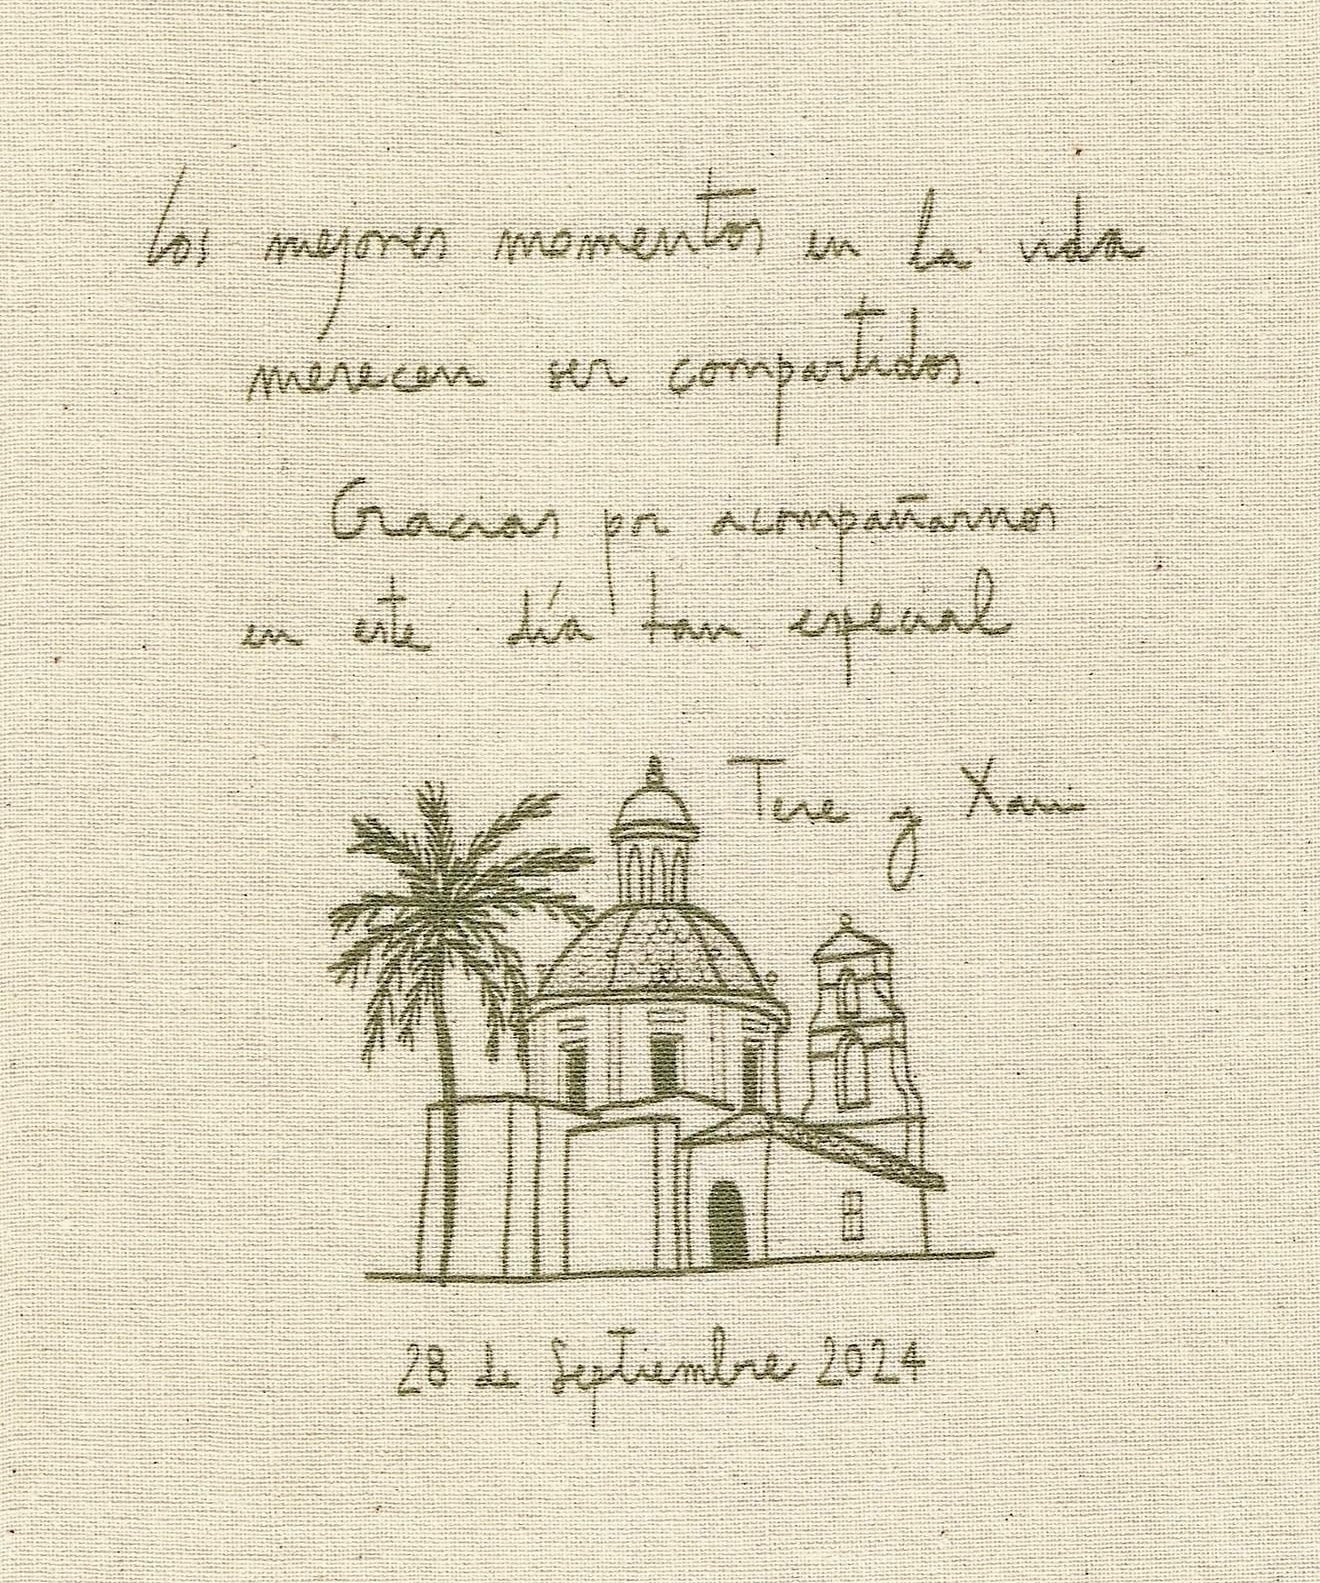 Los mejores momentos en la vida
merecen ser compartidos.
Gracias por acompañarnos
en este día tan especial
Tere y Xavi
28 de Septiembre 2024